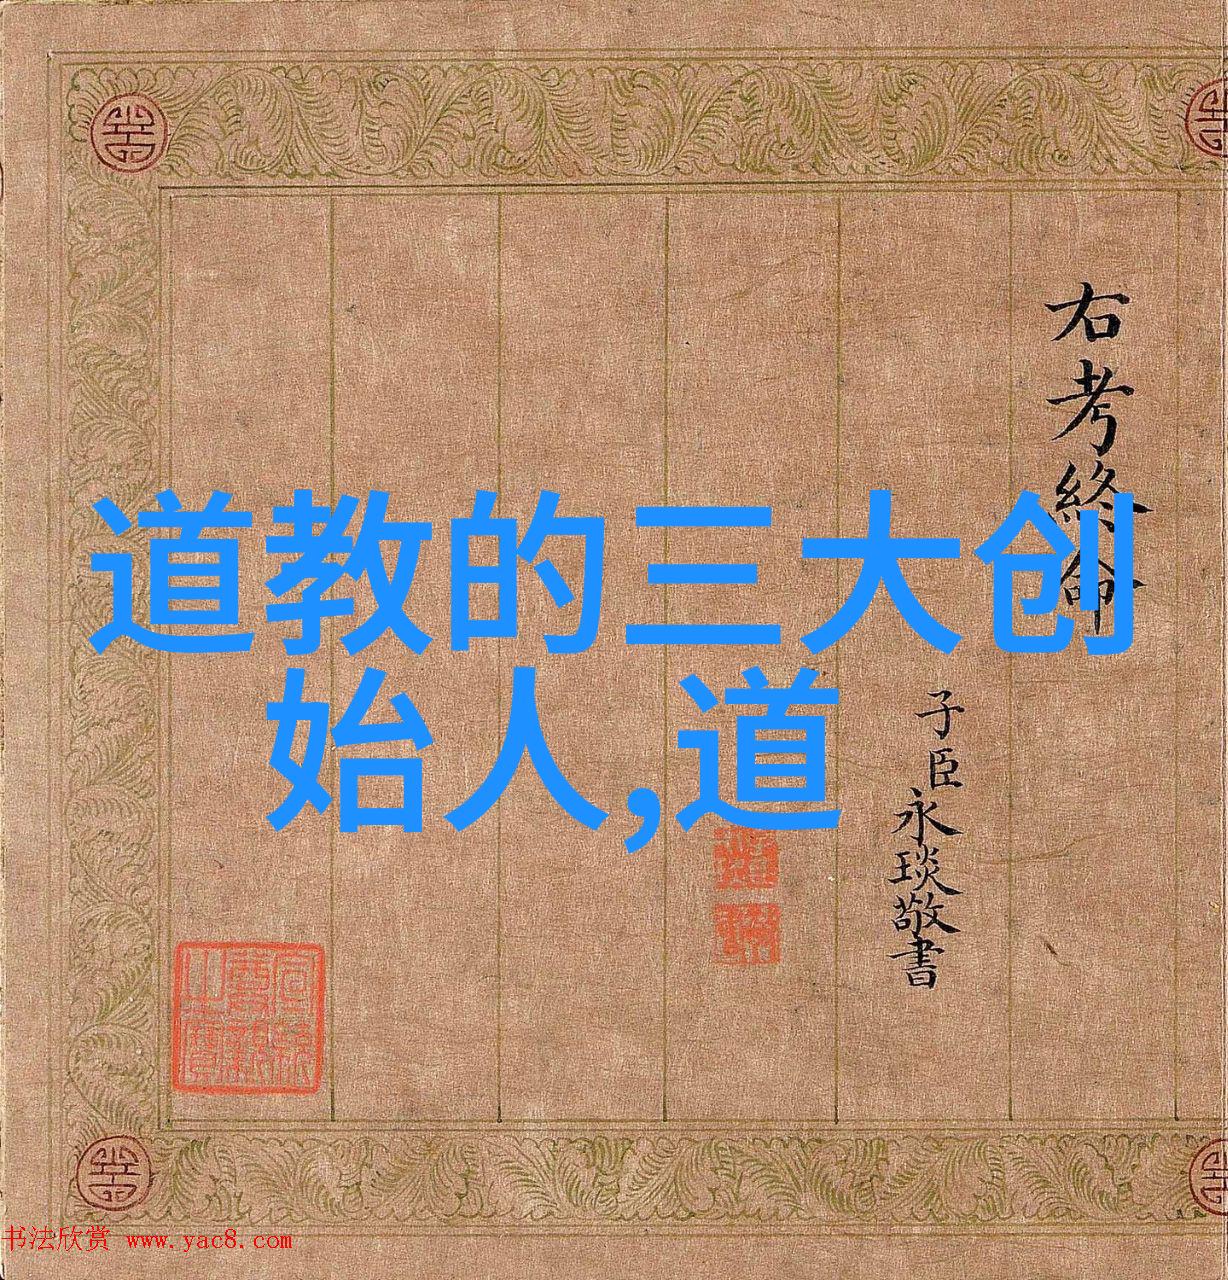 道教的三大创
始人,道
右考終命
子臣永琰敬書
书法欣赏 www.yac8.com